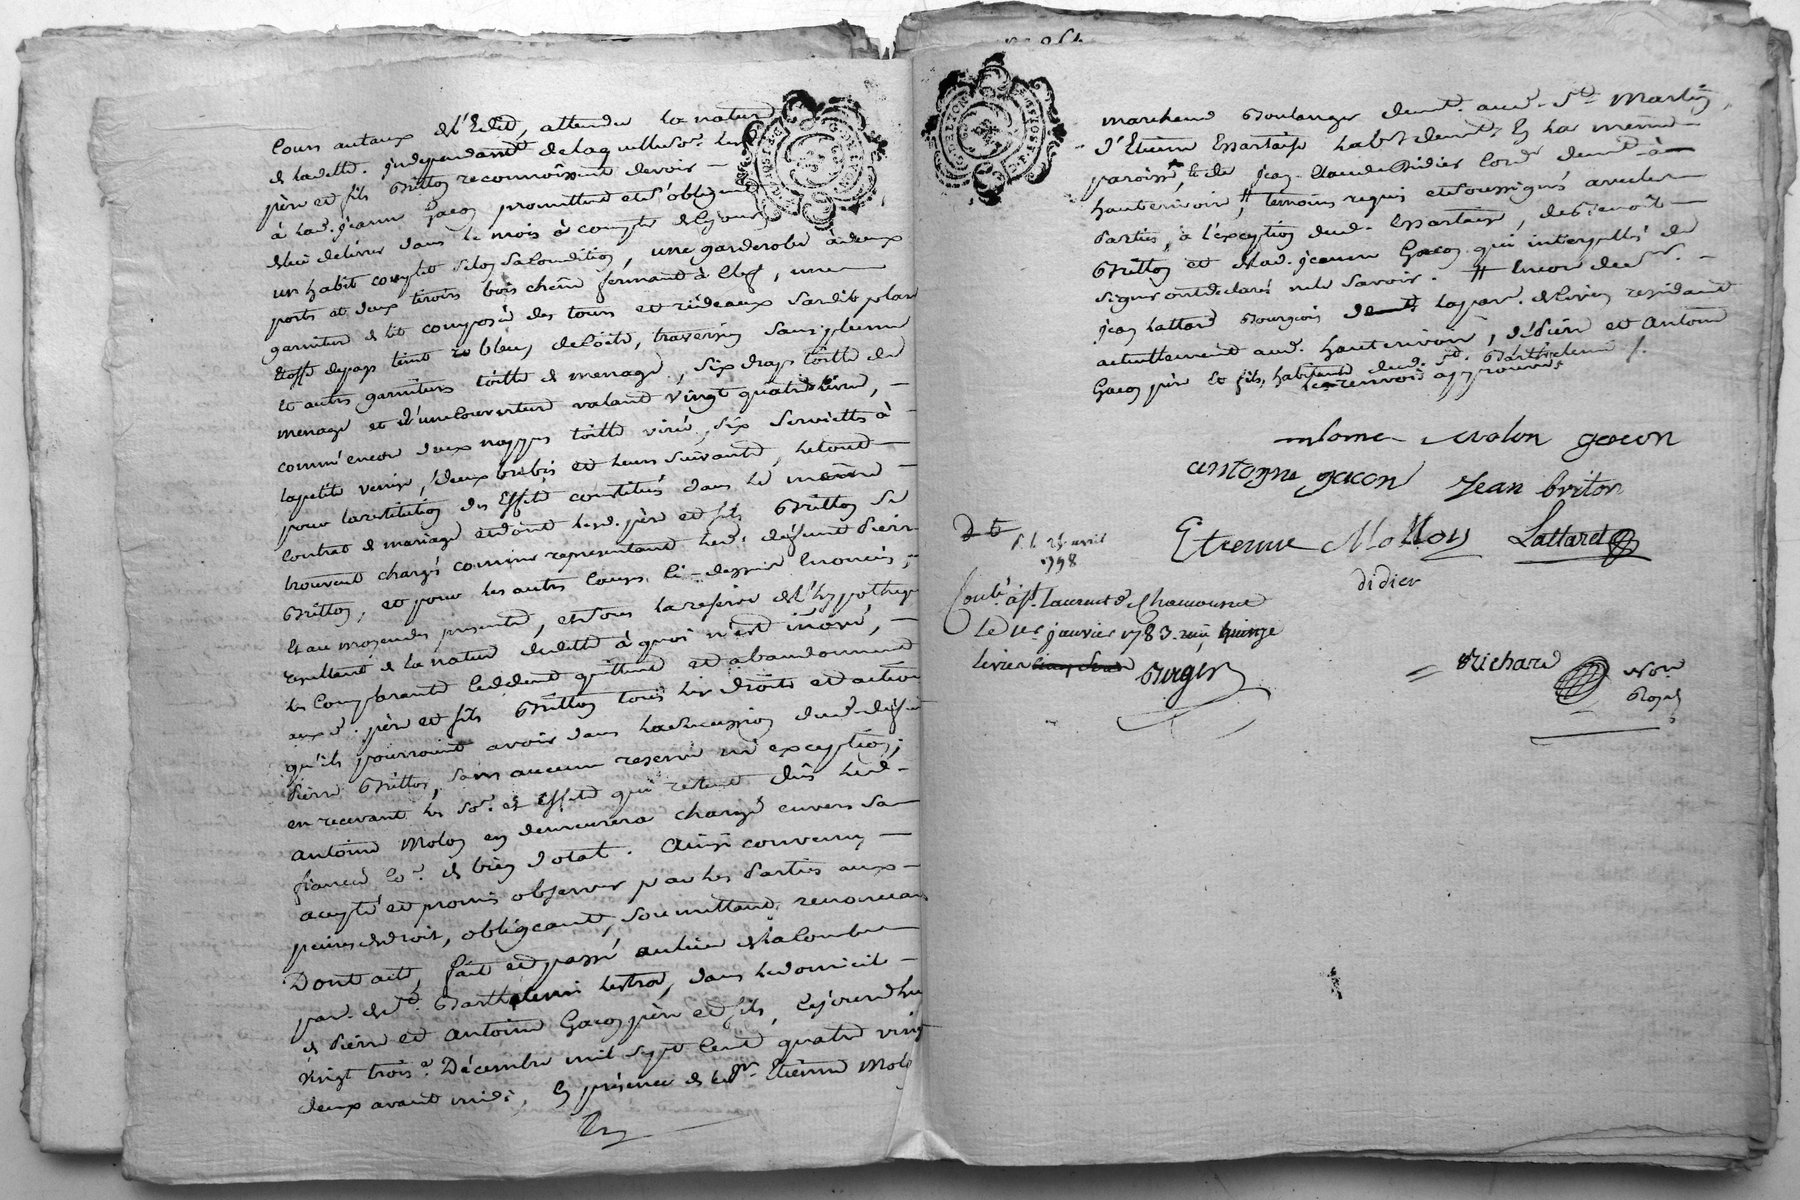 cours au taux de l'Edit, attendu la nature
de la dette. independamt de laquelle so.e les
père et fils Britton reconnoissent devoir
à lad. jeanne Gacon promettent et s'obligent
de lui delivrer dans le mois à compter de ce jour
un habit complet selon sa condition, une garderobe à deux
portes et deux tiroirs bois chêne fermant à clef, une
garniture de lit composée des tours et rideaux
Etoffe du pays teint en bleu, de Coite, traversin sans plume
et autres garnitures toille de menage, six draps toille de
menage et d'une couverture valant vingt quatre livres,
comm' encore deux nappes toille, six serviettes à
la petite venise, deux brebis et leurs suivants, le tout
pour la restitution des Effets constitués dans le même
Contrat de mariage et dont lesd. père et fils Britton se
trouvent chargés comme representant led. défunt Pierre
Britton, et pour les autres causes ci-dessus enoncées;
Et au moyen des presents, et sous la reserve de l'hypotheque
resultant de la nature de dette à quoi n'est inové,
les Comparants cedent quittent et abandonnent
auxd. père et fils Britton tous les droits et actions
qu'ils pourroient avoir dans la succession dud. défunt
Pierre Britton, sans aucune reserve ni exception;
en recevant les so.es et Effets qui restent dûs led.
antoine Molon en demeurera chargé envers sa
fiancée co.e de bien dotal. Ainsi convenu,
accepté et promis observer par les Parties aux
peines de droit, obligeant, soumettant, renonceant
Dont acte, fait et passé au lieu de la Combe
par. de St. Barthelemi lestra, dans le domicile
de Pierre et Antoine Gacon père et fils, cejourd'hui
vingt trois e. Décembre mil sept cent quatre vingt
deux avant midi, En présence de sr. Etienne Molon
marchand Boulanger demt. aud. St. Martin,
d'Etienne Essartaise habt demt. En la même
paroisse, & de Jean Claude Didier cord.r demt à
hauterivoire, # temoins requis et soussignés avec les
Parties, à l'exception dud. Essartaise, de Benoît
Britton et de lad. jeanne Gacon qui interpellés de
signer ont declarés ne le savoir. # Encore de Sr.
jean Lattard Bourgeois demt la par. residant
actuellement aud. hauterivoire, de Pierre et Antoine
Gacon père et fils, habitants dud. St. Barthelemi /.
les renvois approuvés
antoine molon gacon
antoyne gacon Jean briton
Etienne Mollon Lattard
didier
D t
le 25 avril
1798
Conlé. à St. Laurent de Chamousset
le 1er. janvier 1783. reçu quinze
livres
Burger
= Richard Nore
Royal